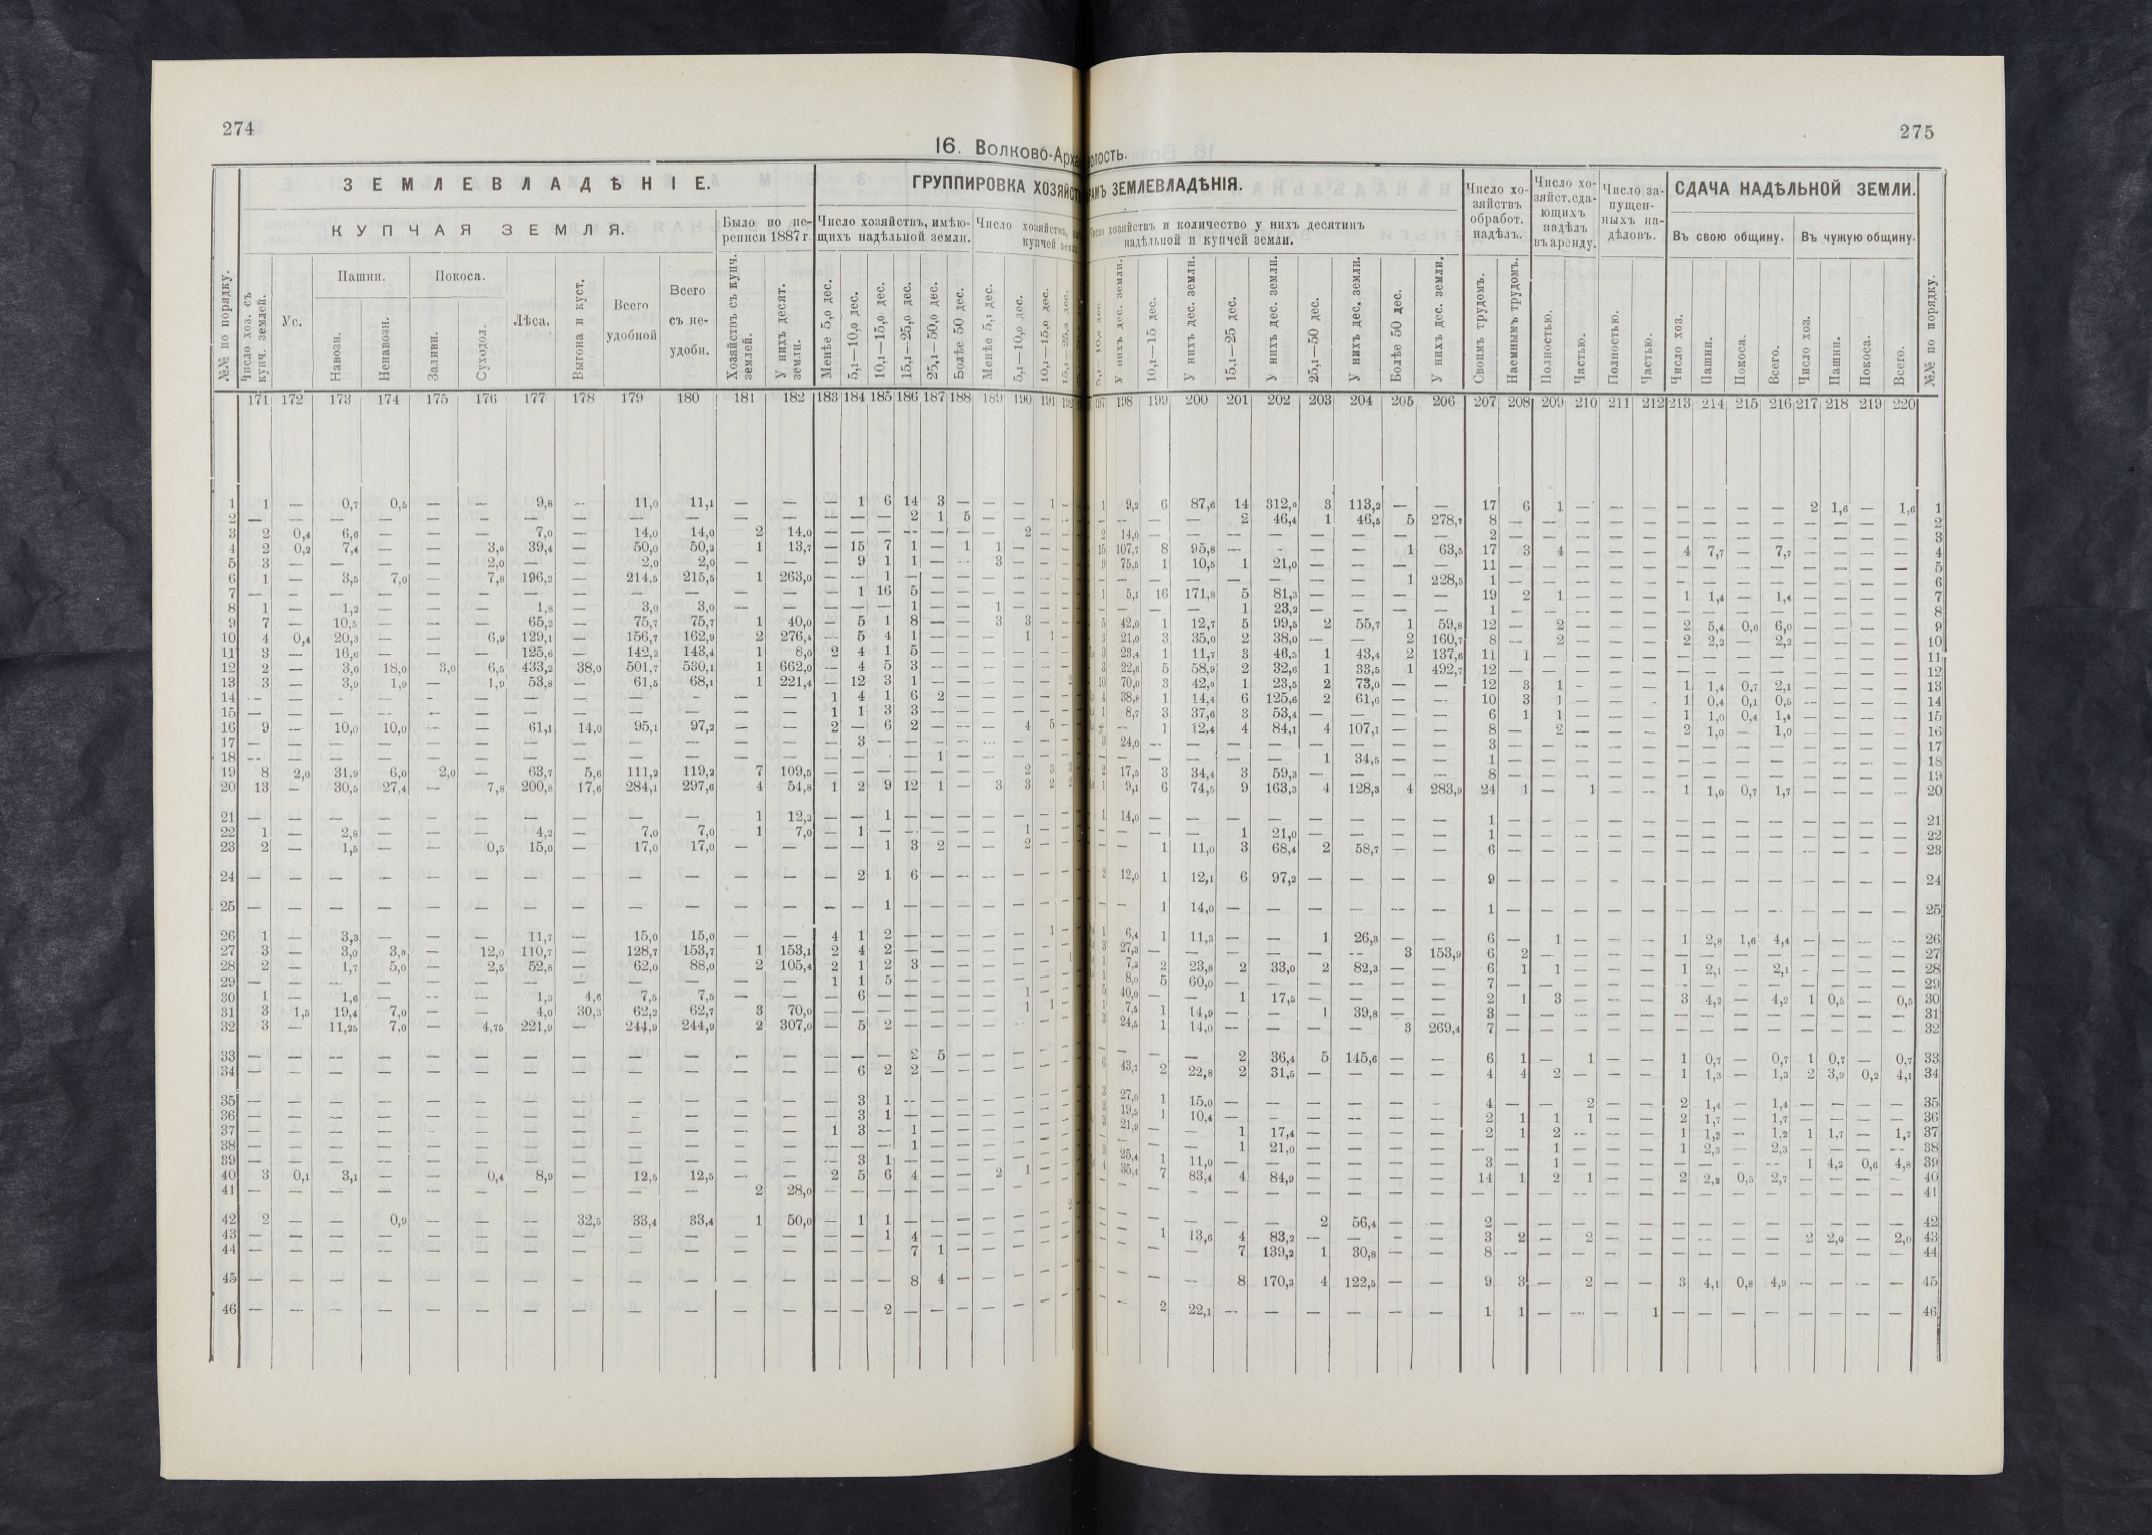 274
16. Волково-Арха
ЗЕМЛЕВЛАДѢНІЕ.
ГРУППИРОВКА ХОЗЯЙСТ
КУПЧАЯ ЗЕМЛЯ.
Было по пе-
реписи 1887 г.
Число хозяйствъ, имѣю-
щихъ надѣльной земли.
Число хозяйствъ,
купчей
№№ по порядку.
Число хоз. съ купч. землей.
Ус.
Пашни.
Навозн.
Ненавозн.
Покоса.
Заливн.
Суходол.
Лѣса.
Выгона и куст.
Всего
удобной
Всего
съ не-
удобн.
Хозяйствъ съ купч. землей.
У нихъ десят. земли.
Менѣе 5,0 дес.
5,1—10,0 дес.
10,1—15,0 дес.
15,1—25,0 дес.
25,1—50,0 дес.
Болѣе 50 дес.
Менѣе 5,1 дес.
5,1—10,0 дес.
10,1—15,0 дес.
15,1—25,0 дес.
171 172 173 174 175 176 177 178 179 180 181 182 183 184 185 186 187 188 189 190 191 192
1 1 — 0,7 0,5 — — 9,8 — 11,0 11,1 — — — 1 6 14 3 — — — 1 —
2 — — — — — — — — — — — — — — — 2 1 5 — — — —
3 2 0,4 6,6 — — — 7,0 — 14,0 14,0 2 14,0 — — — — — — — 2 — —
4 2 0,2 7,4 — — 3,0 39,4 — 50,0 50,3 1 13,7 — 15 7 1 — 1 1 — — —
5 3 — — — — 2,0 — — 2,0 2,0 — — — 9 1 1 — — 3 — — —
6 1 — 3,5 7,0 — 7,8 196,2 — 214,5 215,5 1 263,0 — — 1 — — — — — — —
7 — — — — — — — — — — — — — 1 16 5 — — — — — —
8 1 — 1,2 — — — 1,8 — 3,0 3,0 — — — — — 1 — — 1 — — —
9 7 — 10,5 — — — 65,2 — 75,7 75,7 1 40,0 — 5 1 8 — — 3 3 — —
10 4 0,4 20,3 — — 6,9 129,1 — 156,7 162,9 2 276,4 — 5 4 1 — — — 1 1 —
11 3 — 16,6 — — — 125,6 — 142,2 143,4 1 8,0 2 4 1 5 — — — — — —
12 2 — 3,0 18,0 3,0 6,5 433,2 38,0 501,7 530,1 1 662,0 — 4 5 3 — — — — — —
13 3 — 3,9 1,9 — 1,9 53,8 — 61,5 68,1 1 221,4 — 12 3 1 — — — — — 2
14 — — — — — — — — — — — — 1 4 1 6 2 — — — — —
15 — — — — — — — — — — — — 1 1 3 3 — — — — — —
16 9 — 10,0 10,0 — — 61,1 14,0 95,1 97,2 — — 2 — 6 2 — — — 4 5 —
17 — — — — — — — — — — — — — 3 — — — — — — — —
18 — — — — — — — — — — — — — — — — 1 — — — — —
19 8 2,0 31,9 6,0 2,0 — 63,7 5,6 111,2 119,2 7 109,5 — — — — — — — 2 3 3
20 13 — 30,5 27,4 — 7,8 200,8 17,6 284,1 297,6 4 54,8 1 2 9 12 1 — 3 3 2 2
21 — — — — — — — — — — 1 12,3 — — 1 — — — — — — —
22 1 — 2,8 — — — 4,2 — 7,0 7,0 1 7,0 — 1 — — — — — 1 — —
23 2 — 1,5 — — 0,5 15,0 — 17,0 17,0 — — — — 1 3 2 — — 2 — —
24 — — — — — — — — — — — — — 2 1 6 — — — — — —
25 — — — — — — — — — — — — — — 1 — — — — — — —
26 1 — 3,3 — — — 11,7 — 15,0 15,0 — — 4 1 2 — — — — — 1 —
27 3 — 3,0 3,0 — 12,0 110,7 — 128,7 153,7 1 153,1 2 4 2 — — — — — — 1
28 2 — 1,7 5,0 — 2,5 52,8 — 62,0 88,0 2 105,4 2 1 2 3 — — — — — —
29 — — — — — — — — — — — — 1 1 5 — — — — — — —
30 1 — 1,6 — — — 1,3 4,6 7,5 7,5 — — — 6 — — — — — 1 — —
31 3 1,5 19,4 7,0 — — 4,0 30,3 62,2 62,7 3 70,0 — — — — — — — 1 1 —
32 3 — 11,25 7,0 — 4,75 221,9 — 244,9 244,9 2 307,0 — 5 2 — — — — — — —
33 — — — — — — — — — — — — — — — 2 5 — — — — —
34 — — — — — — — — — — — — — 6 2 2 — — — — — —
35 — — — — — — — — — — — — — 3 1 — — — — — — —
36 — — — — — — — — — — — — — 3 1 — — — — — — —
37 — — — — — — — — — — — — 1 3 — 1 — — — — — —
38 — — — — — — — — — — — — — — — 1 — — — — — —
39 — — — — — — — — — — — — — 3 1 — — — — — — —
40 3 0,1 3,1 — — 0,4 8,9 — 12,5 12,5 — — 2 5 6 4 — — 2 1 — —
41 — — — — — — — — — — 2 28,0 — — — — — — — — — —
42 2 — — 0,9 — — — 32,5 33,4 33,4 1 50,0 — 1 1 — — — — — — 2
43 — — — — — — — — — — — — — — 1 4 — — — — — —
44 — — — — — — — — — — — — — — — 7 1 — — — — —
45 — — — — — — — — — — — — — — — 8 4 — — — — —
46 — — — — — — — — — — — — — — 2 — — — — — — —
275
олость.
РАМЪ ЗЕМЛЕВЛАДѢНІЯ.
хозяйствъ и количество у нихъ десятинъ
надѣльной и купчей земли.
Число хо-
зяйствъ
обработ.
надѣлъ.
Число хо-
зяйст. сда-
ющихъ
надѣлъ
въ аренду.
Число за-
пущен-
ныхъ на-
дѣловъ.
СДАЧА НАДѢЛЬНОЙ ЗЕМЛИ.
Въ свою общину.
Въ чужую общину.
5,1—10,0 дес.
У нихъ дес. земли.
10,1—15 дес.
У нихъ дес. земли.
15,1—25 дес.
У нихъ дес. земли.
25,1—50 дес.
У нихъ дес. земли.
Болѣе 50 дес.
У нихъ дес. земли.
Своимъ трудомъ.
Наемнымъ трудомъ.
Полностью.
Частью.
Полностью.
Частью.
Число хоз.
Пашни.
Покоса.
Всего.
Число хоз.
Пашни.
Покоса.
Всего.
№№ по порядку.
197 198 199 200 201 202 203 204 205 206 207 208 209 210 211 212 213 214 215 216 217 218 219 220
1 9,2 6 87,6 14 312,0 3 113,2 — — 17 6 1 — — — — — — — 2 1,6 — 1,6 1
— — — — 2 46,4 1 46,5 5 278,7 8 — — — — — — — — — — — — — 2
2 14,0 — — — — — — — — 2 — — — — — — — — — — — — — 3
15 107,7 8 95,8 — — — — 1 63,5 17 3 4 — — — 4 7,7 — 7,7 — — — — 4
9 75,5 1 10,5 1 21,0 — — — — 11 — — — — — — — — — — — — — 5
— — — — — — — — 1 228,5 1 — — — — — — — — — — — — — 6
1 5,1 16 171,8 5 81,3 — — — — 19 2 1 — — — 1 1,4 — 1,4 — — — — 7
— — — — 1 23,2 — — — — 1 — — — — — — — — — — — — — 8
5 42,0 1 12,7 5 99,5 2 55,7 1 59,8 12 — 2 — — — 2 5,4 0,6 6,0 — — — — 9
3 21,0 3 35,0 2 38,0 — — 2 160,7 8 — 2 — — — 2 2,2 — 2,2 — — — — 10
3 23,4 1 11,7 3 46,5 1 43,4 2 137,6 11 1 — — — — — — — — — — — — 11
3 22,6 5 58,9 2 32,6 1 33,5 1 492,7 12 — — — — — — — — — — — — — 12
10 70,0 3 42,0 1 23,5 2 73,0 — — 12 3 1 — — — 1 1,4 0,7 2,1 — — — — 13
4 38,8 1 14,4 6 125,6 2 61,6 — — 10 3 1 — — — 1 0,4 0,1 0,5 — — — — 14
1 8,7 3 37,6 3 53,4 — — — — 6 1 1 — — — 1 1,0 0,4 1,4 — — — — 15
— — 1 12,4 4 84,1 4 107,1 — — 8 — 2 — — — 2 1,0 — 1,0 — — — — 16
3 24,0 — — — — — — — — 3 — — — — — — — — — — — — — 17
— — — — — — 1 34,5 — — 1 — — — — — — — — — — — — — 18
2 17,5 3 34,4 3 59,3 — — — — 8 — — — — — — — — — — — — — 19
1 9,1 6 74,5 9 163,3 4 128,3 4 283,9 24 1 — 1 — — 1 1,0 0,7 1,7 — — — — 20
1 14,0 — — — — — — — — 1 — — — — — — — — — — — — — 21
— — — — 1 21,0 — — — — 1 — — — — — — — — — — — — — 22
— — 1 11,0 3 68,4 2 58,7 — — 6 — — — — — — — — — — — — — 23
2 12,0 1 12,1 6 97,2 — — — — 9 — — — — — — — — — — — — — 24
— — 1 14,0 — — — — — — 1 — — — — — — — — — — — — — 25
1 6,4 1 11,3 — — 1 26,3 — — 6 — 1 — — — 1 2,8 1,6 4,4 — — — — 26
3 27,3 — — — — — — 3 153,9 6 2 — — — — — — — — — — — — 27
1 7,2 2 23,8 2 33,0 2 82,3 — — 6 1 1 — — — 1 2,1 — 2,1 — — — — 28
1 8,0 5 60,0 — — — — — — 7 — — — — — — — — — — — — — 29
5 40,0 — — 1 17,5 — — — — 2 1 3 — — — 3 4,2 — 4,2 1 0,5 — 0,5 30
1 7,5 1 14,9 — — 1 39,8 — — 3 — — — — — — — — — — — — — 31
3 24,5 1 14,0 — — — — 3 269,4 7 — — — — — — — — — — — — — 32
— — — — 2 36,4 5 145,6 — — 6 1 — 1 — — 1 0,7 — 0,7 1 0,7 — 0,7 33
6 43,7 2 22,8 2 31,5 — — — — 4 4 2 — — — 1 1,3 — 1,3 2 3,9 0,2 4,1 34
3 27,0 1 15,0 — — — — — — 4 — — 2 — — 2 1,4 — 1,4 — — — — 35
3 19,5 1 10,4 — — — — — — 2 1 1 1 — — 2 1,7 — 1,7 — — — — 36
3 21,9 — — 1 17,4 — — — — 2 1 2 — — — 1 1,2 — 1,2 1 1,7 — 1,7 37
— — — — 1 21,0 — — — — — — 1 — — — 1 2,3 — 2,3 — — — — 38
3 25,4 1 11,0 — — — — — — 3 — 1 — — — — — — — 1 4,2 0,6 4,8 39
4 35,4 7 83,4 4 84,9 — — — — 14 1 2 1 — — 2 2,2 0,5 2,7 — — — — 40
— — — — — — — — — — — — — — — — — — — — — — — — 41
— — — — — — 2 56,4 — — 2 — — — — — — — — — — — — — 42
— — 1 13,6 4 83,2 — — — — 3 2 — 2 — — — — — — 2 2,0 — 2,0 43
— — — — 7 139,2 1 30,8 — — 8 — — — — — — — — — — — — — 44
— — — — 8 170,3 4 122,5 — — 9 3 — 2 — — 3 4,1 0,8 4,9 — — — — 45
— — 2 22,1 — — — — — — 1 1 — — — 1 — — — — — — — — 46